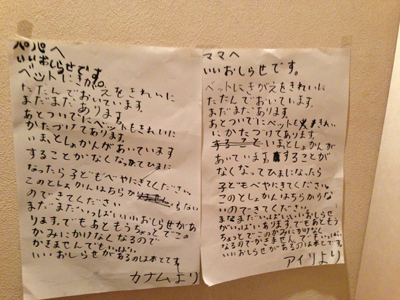 パパへ
いいおしらせです。
ベットにきがえ
たたんでおいています。
まだまだあります。
あとついでにベットもきれいに
かたづけてあります。
いま、としょかんがあいています
することがなくなってひまに
なったら子どもべやにきてください。
このとしょかんはちらか
まだまだいっぱいいいおしらせがあ
ります。でもあともうちょっとでこの
かみにかけなくなるので
かきません。でもいっぱい
いいおしらせがあるのは本とです。
カナムより
ママへ
いいおしらせです。
ベットにきがえをきれいに
たたんでおいています。
まだまだあります。
あとついでにベットも きれい
にかたづけてあります。
いまとしょかんが
あいています。することが
なくなってひまになったら
子どもべやにきてください。
このとしょかんはちらかりな
いのできてください。
まだまだいっぱいいいおしらせ
がいっぱいあります でもあともう
ちょっとでこのかみにかけなく
なるのでかきません でもいっぱい
いいおしらせがあるのは本とです。
アイリより